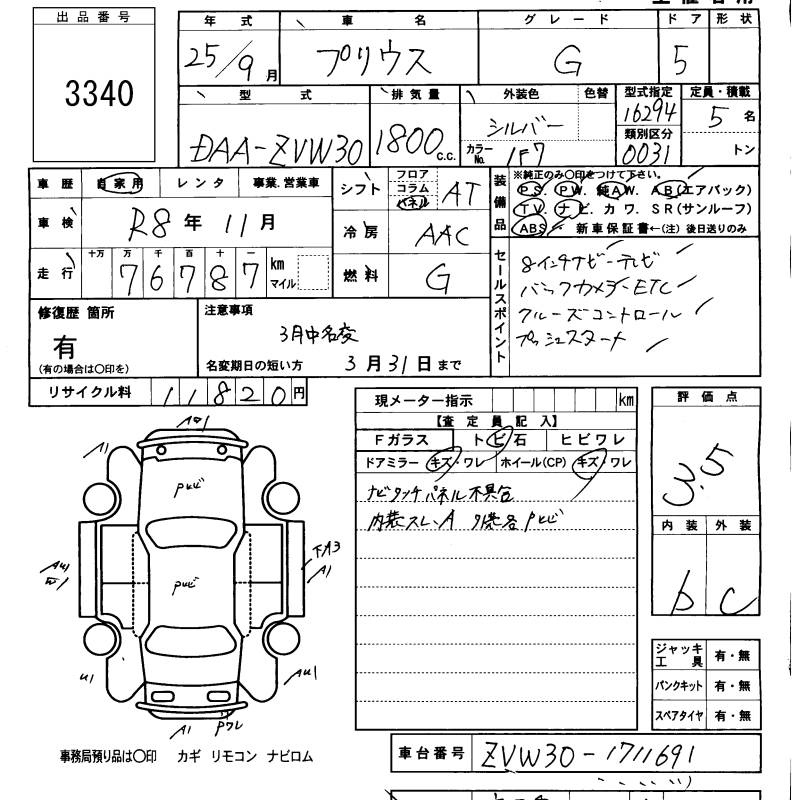 出品番号
3340
年式 車名 グレード ドア 形状
25/9月 プリウス G 5
型式 排気量 外装色 色替 型式指定 定員・積載
DAA-ZVW30 1800 c.c. シルバー 16294 5名
カラーNo. 1F7 類別区分 0031 トン
車歴 自家用 レンタ 事業.営業車
シフト フロア コラム パネル AT
車検 R8年11月
冷房 AAC
走行 十万 万 千 百 十 一 km マイル
7 6 7 8 7
燃料 G
装備品 ※純正のみ〇印をつけて下さい。
PS. PW. 純AW. AB(エアバック)
TV. ナビ. カワ. SR(サンルーフ)
ABS 新車保証書←(注)後日送りのみ
セールスポイント
8インチナビーテレビ
バックカメラー ETC
クルーズコントロール
プッシュスタート
修復歴 箇所
有
(有の場合は〇印を)
注意事項
3月中名変
名変期日の短い方 3月31日まで
リサイクル料 11820円
現メーター指示 km
【査定員記入】
Fガラス トビ石 ヒビワレ
ドアミラー キズ・ワレ ホイール(CP) キズ・ワレ
ナビタッチパネル不具合
内装スレ、A
評価点
3.5
内装 外装
b c
ジャッキ工具 有・無
パンクキット 有・無
スペアタイヤ 有・無
A1
A1
下A3
A1
A1
事務局預り品は〇印 カギ リモコン ナビロム
車台番号 ZVW30-1711691